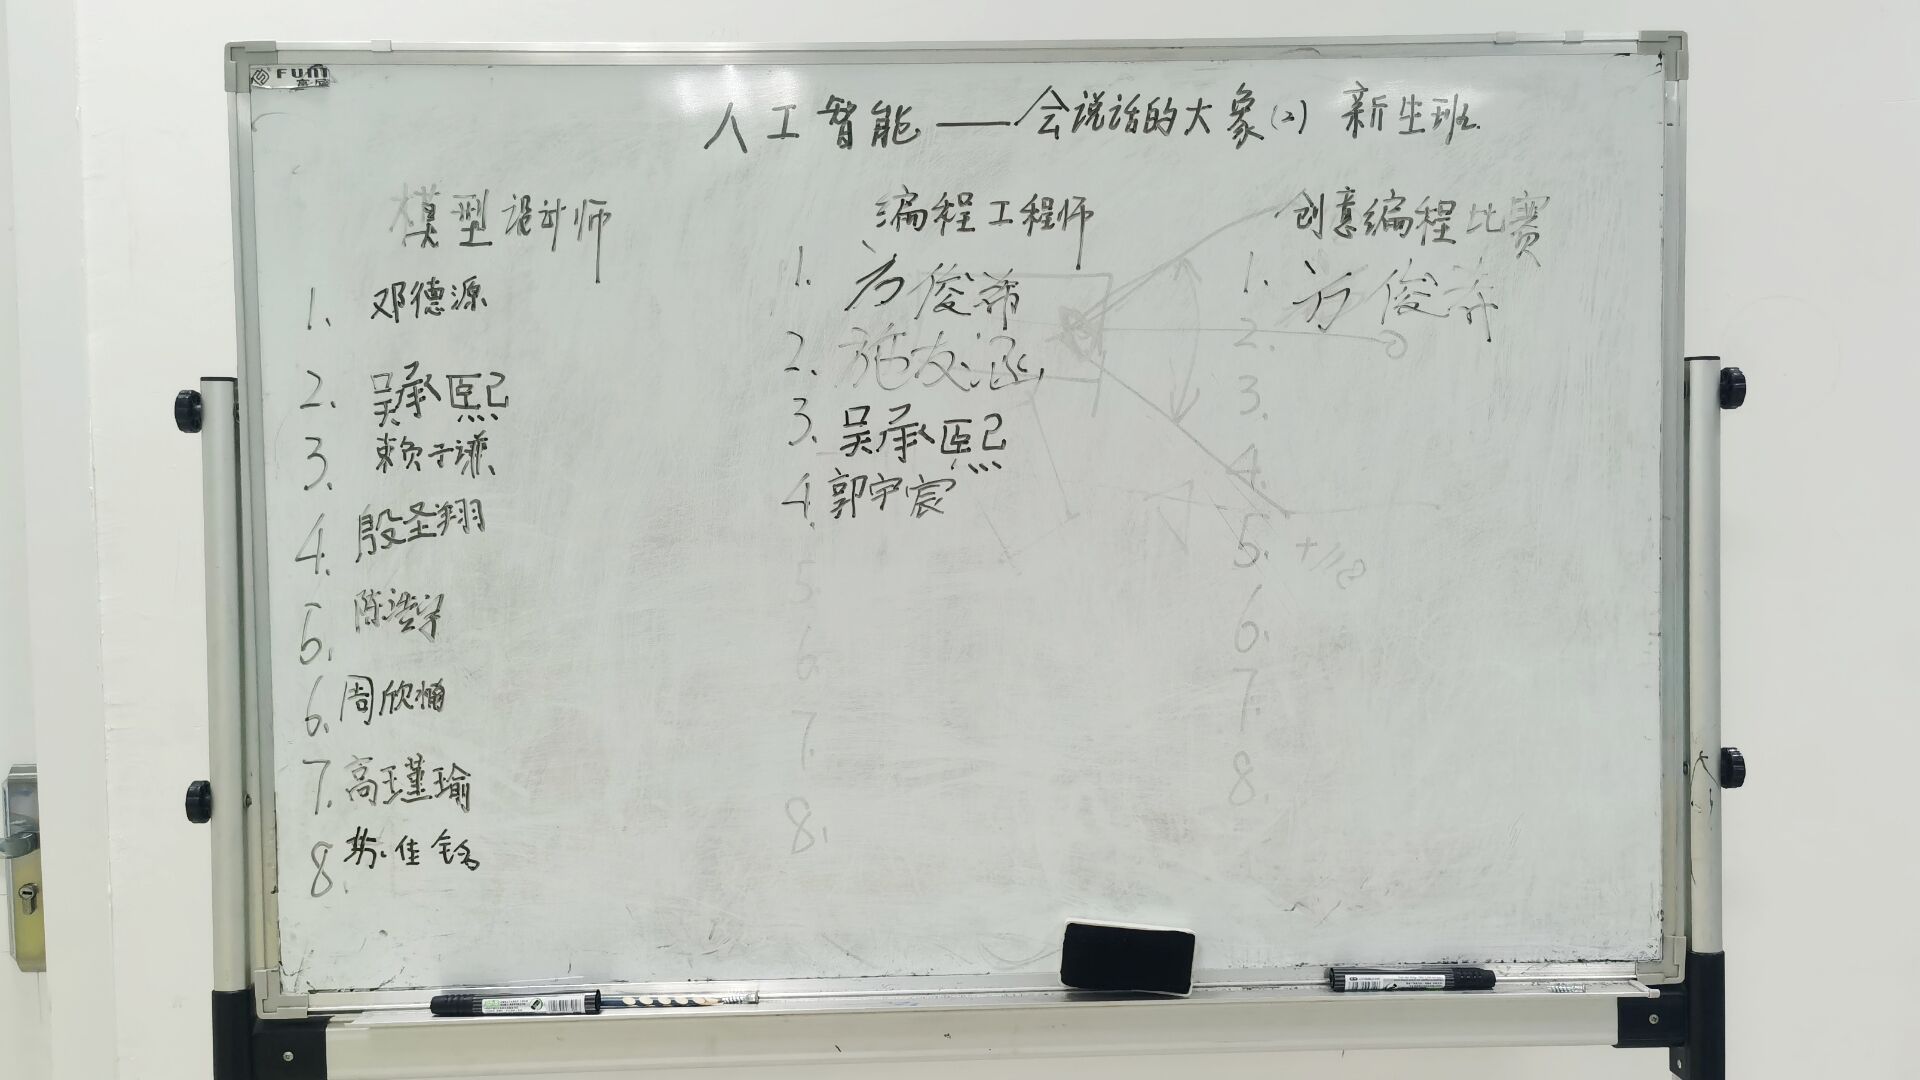 FUNI
人工智能——会说话的大象(2) 新生班
模型设计师
1. 邓德源
2. 吴承熙
3. 赖子谦
4. 殷圣翔
5. 陈浩宇
6. 周欣楠
7. 高瑾瑜
8. 苏佳铭
编程工程师
1. 方俊希
2. 施友涵
3. 吴承熙
4. 郭宇宸
5
6
7.
8.
创意编程比赛
1. 方俊希
2.
3.
4.
5.
6.
7.
8.